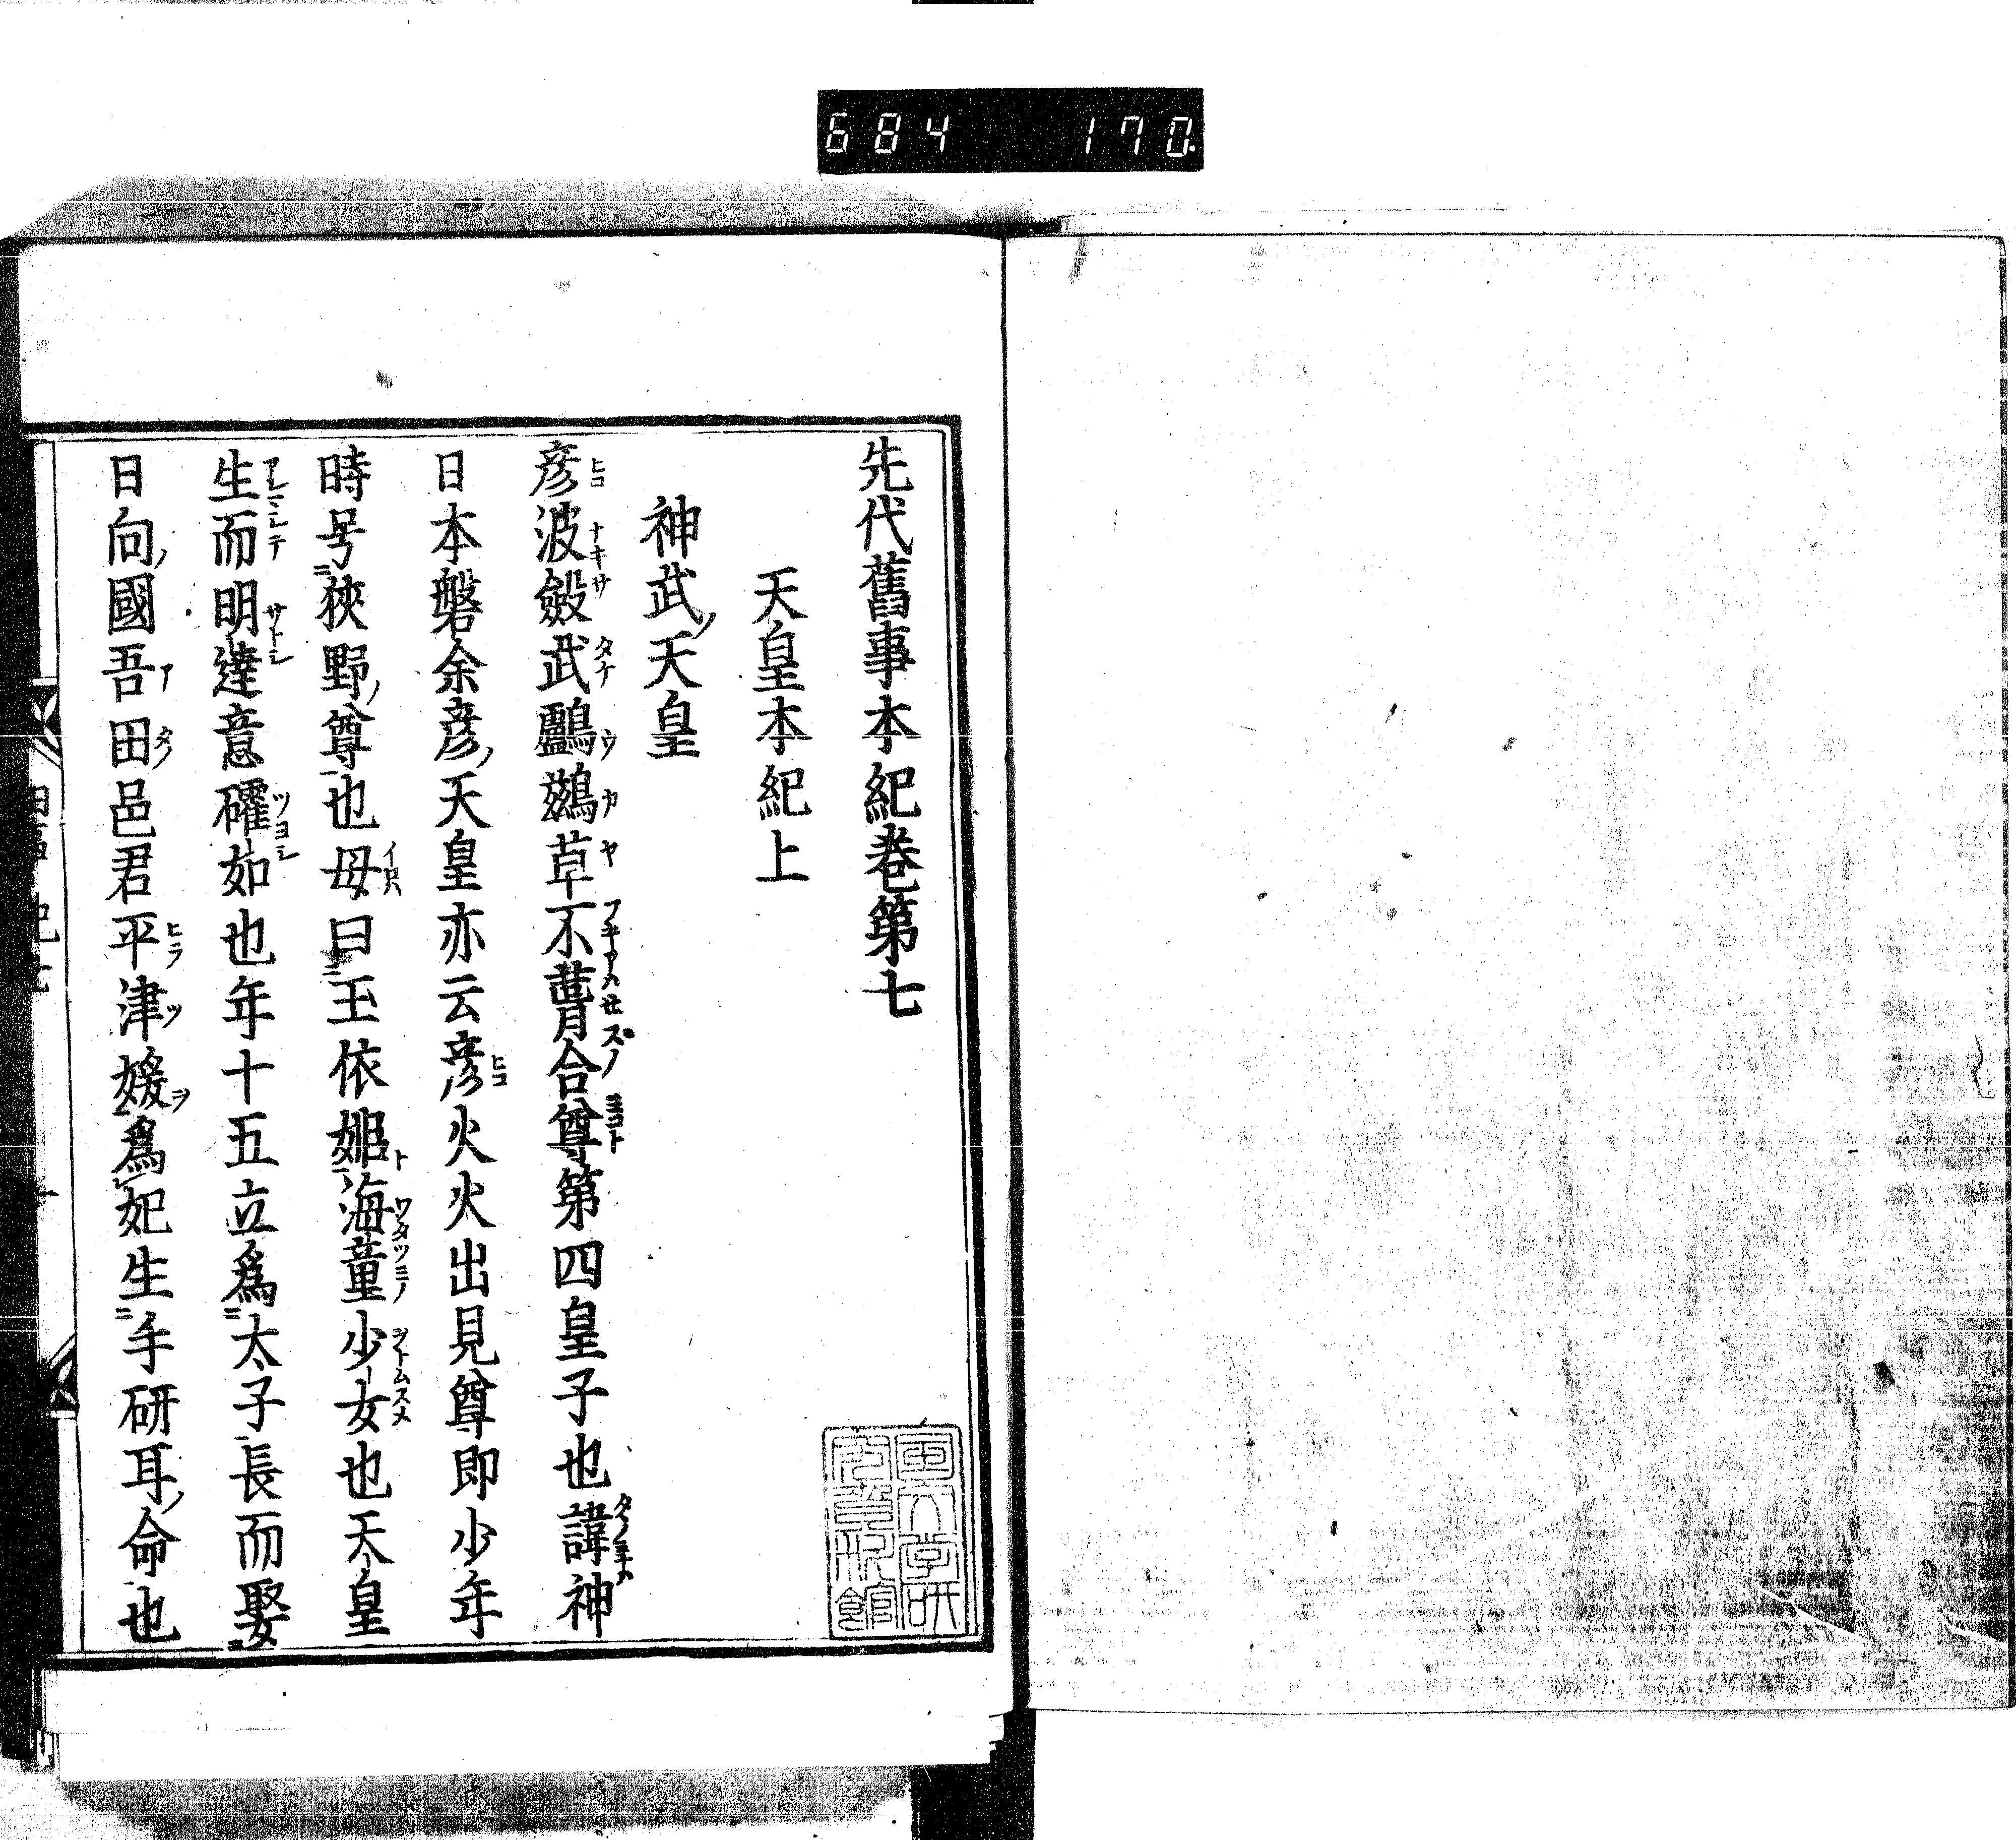 684 170.
先代舊事本紀巻第七
天皇本紀上
神武ノ天皇
彦波瀲武鸕鷀草不葺合尊第四皇子也諱神
日本磐余彦ノ天皇亦云彦火火出見尊即少年
時号狹野ノ尊也母曰玉依姫海童少女也天皇
生而明達意確如也年十五立為太子長而娶
日向ノ國吾田邑君平津媛為妃生手研耳ノ命也